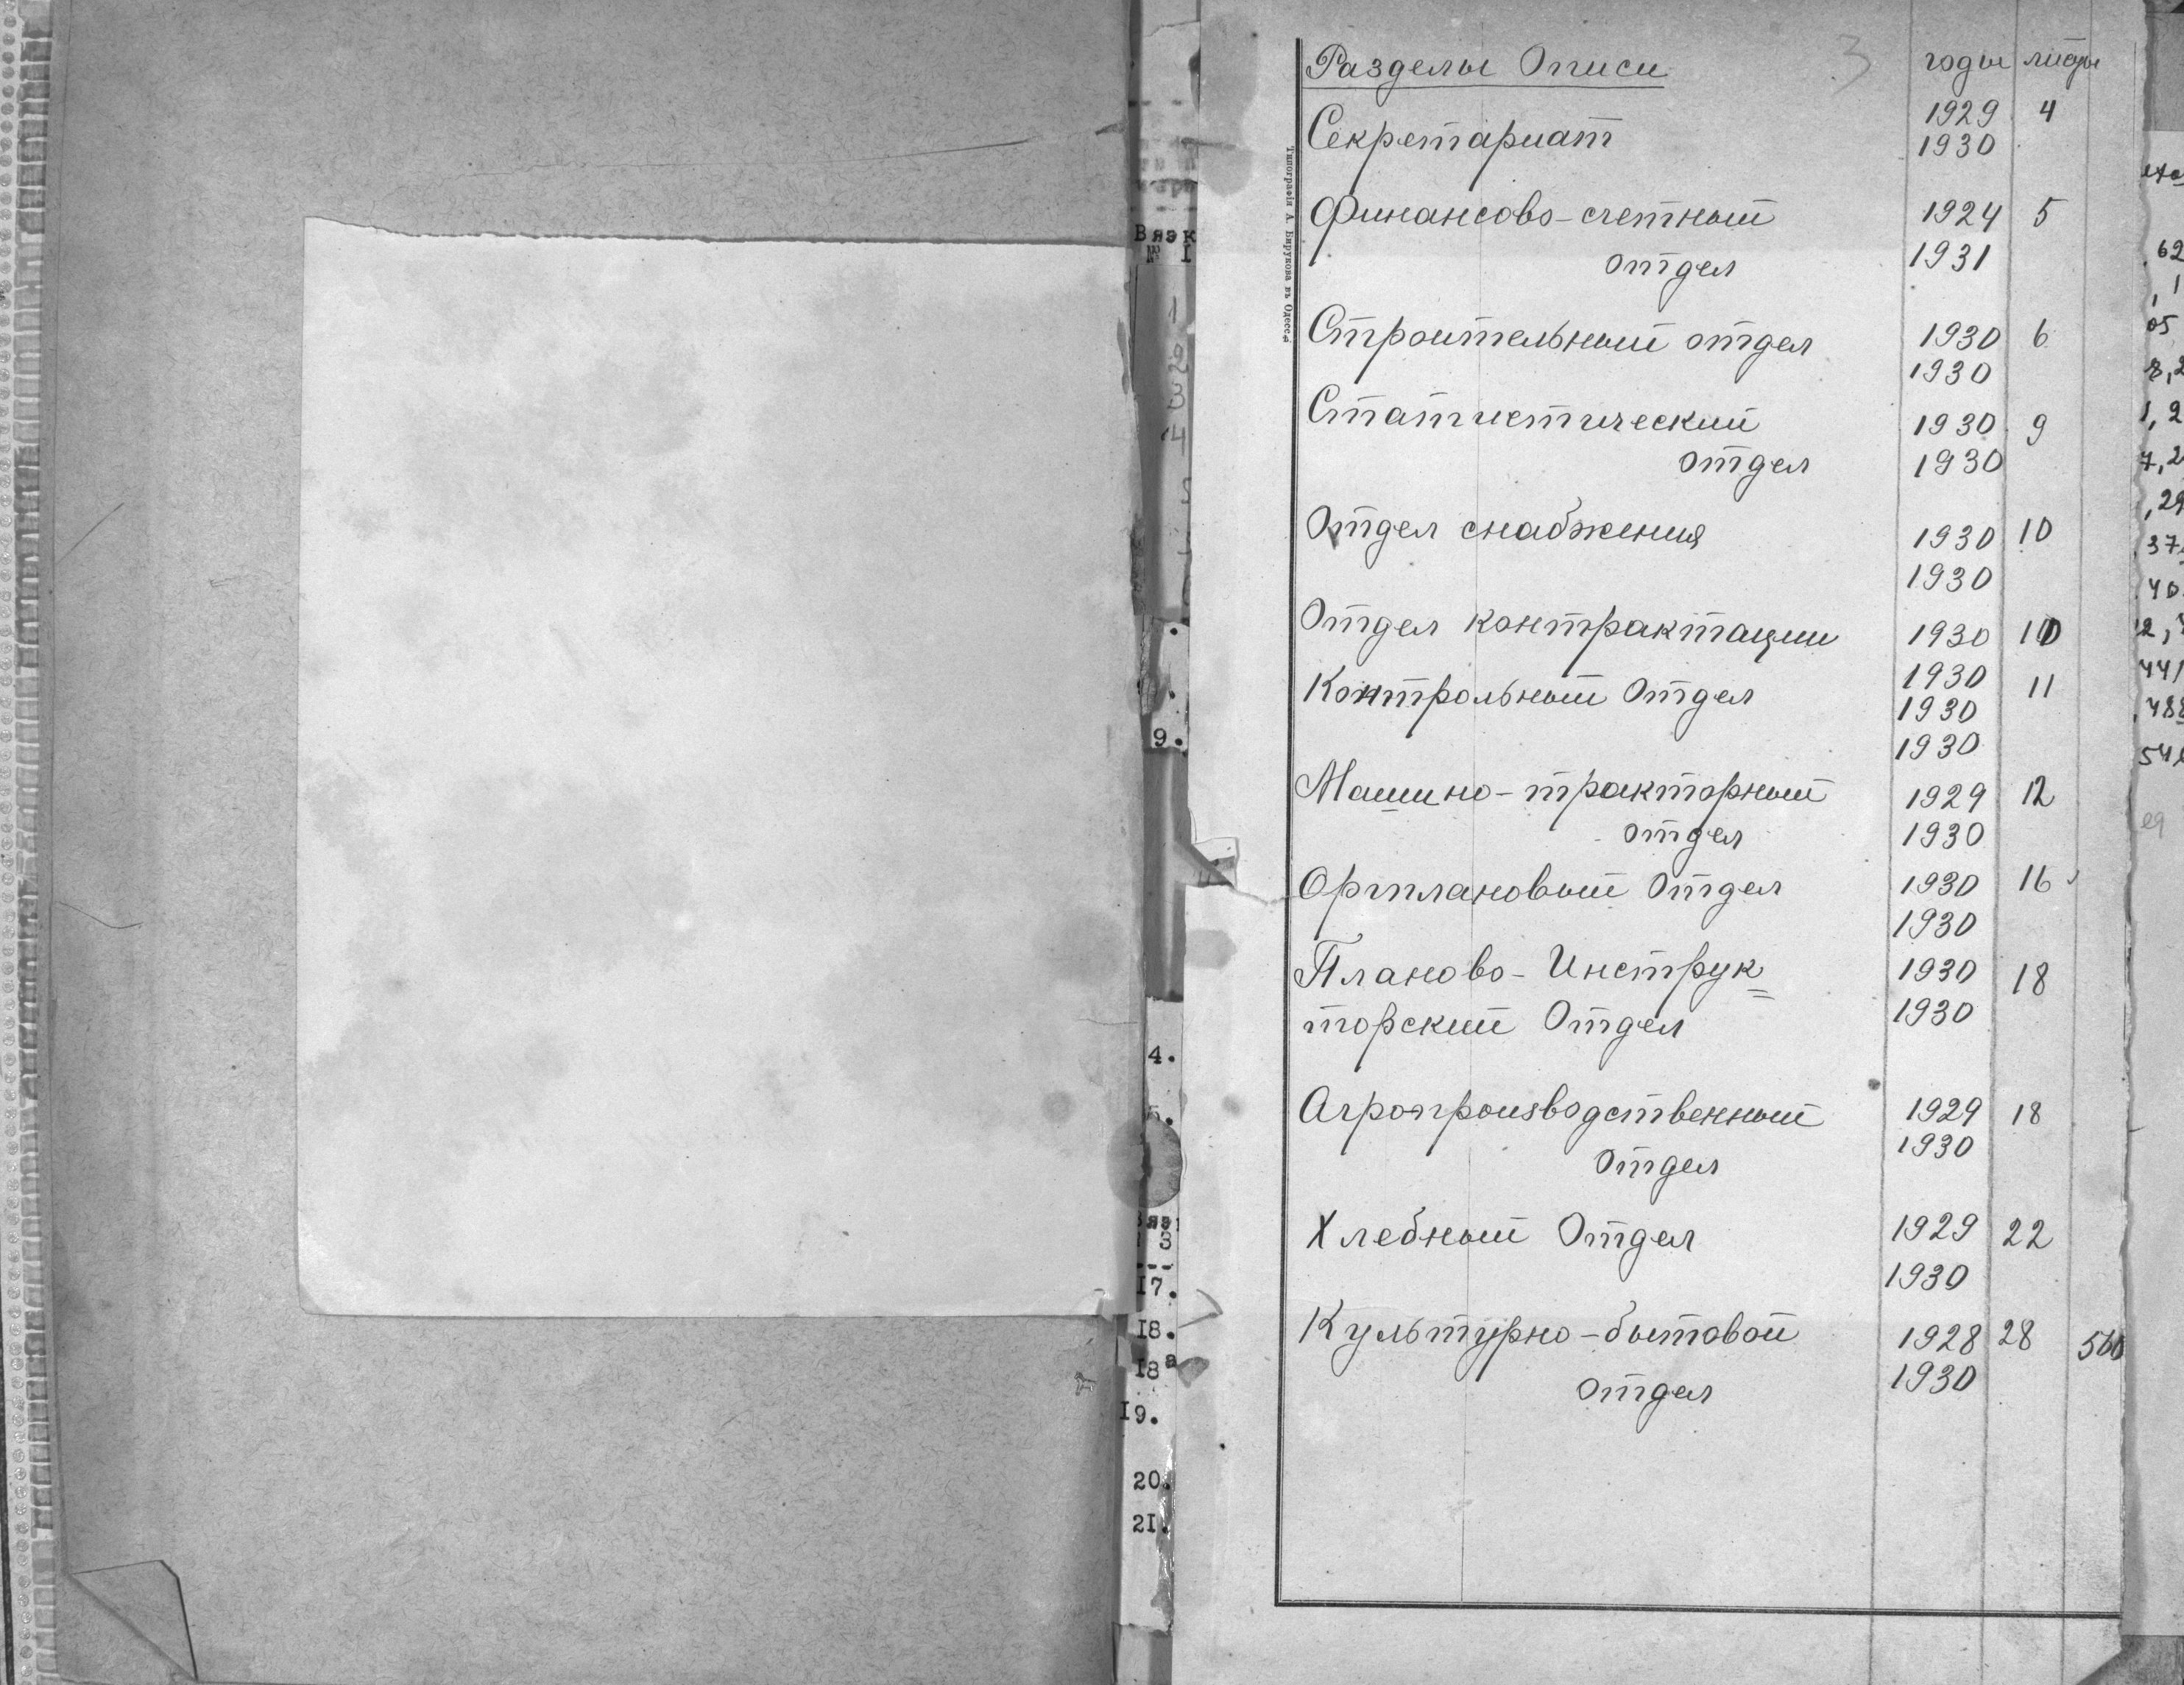 Вязк
№ I
1
2
3
4
9.
4.
5.
3
I7.
I8.
I8а
I9.
20.
2I.
Типографія А. Бирукова въ Одессѣ
3
Разделы Описи годы листы
Секретариат 1929 4
1930
Финансово-счетный 1924 5
отдел 1931
Строительный отдел 1930 6
1930
Статистический 1930 9
отдел 1930
Отдел снабжения 1930 10
1930
Отдел контрактации 1930 10
Контрольный Отдел 1930 11
1930
1930
Машино-тракторный 1929 12
отдел 1930
Оргплановый Отдел 1930 16
1930
Планово-Инструк= 1930 18
торский Отдел 1930
Агропроизводственный 1929 18
Отдел 1930
Хлебный Отдел 1929 22
1930
Культурно-бытовой 1928 28
отдел 1930
62
05
8,2
1,2
7,2
,29
37
40
441
488